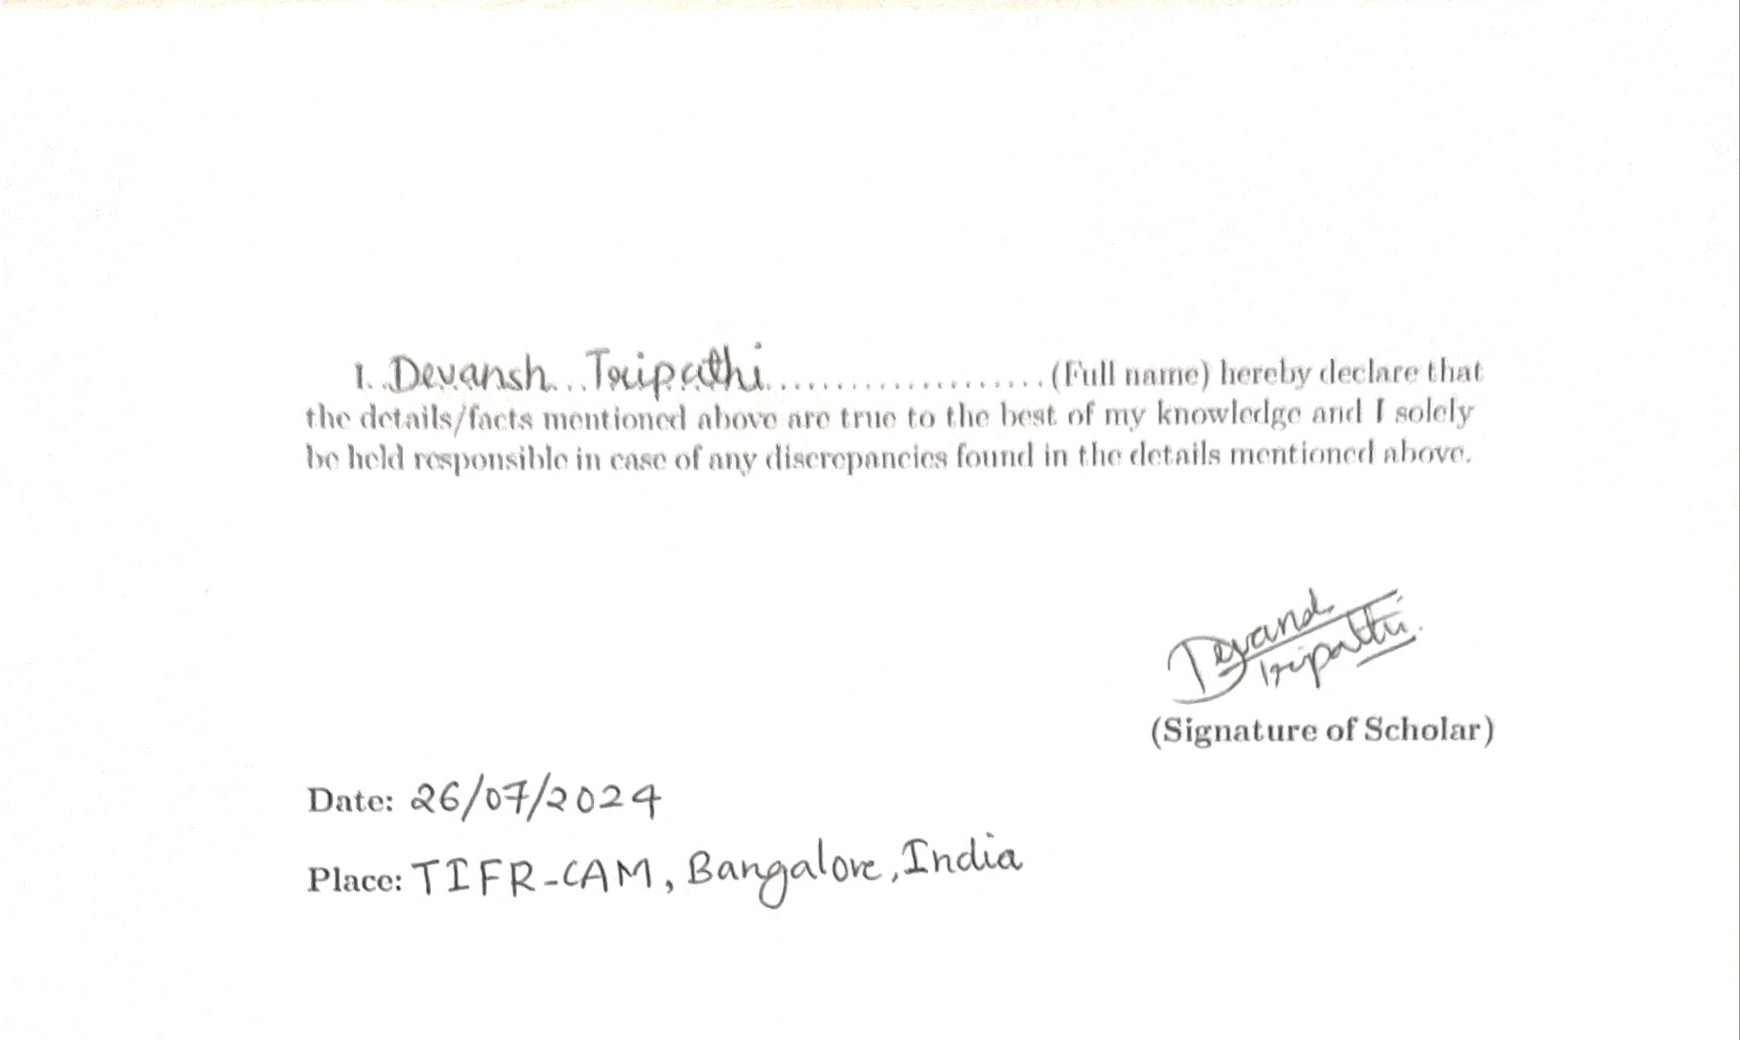 I. Devansh Tripathi.................... (Full name) hereby declare that
the details/facts mentioned above are true to the best of my knowledge and I solely
be held responsible in case of any discrepancies found in the details mentioned above.
Tripathi
(Signature of Scholar)
Date: 26/07/2024
Place: TIFR-CAM, Bangalore, India